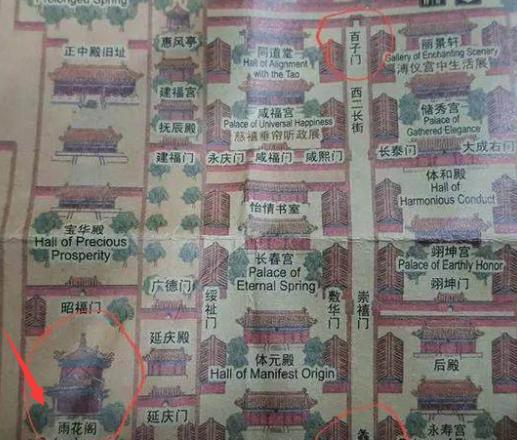 Prolonged Spring
正中殿旧址
惠风亭
同道堂
Hall of Alignment
with the Tao
百子门
丽景轩
Gallery of Enchanting Scenery
溥仪宫中生活展
建福宫
抚辰殿
建福门
咸福宫
Palace of Universal Happiness
慈禧垂帘听政展
永庆门
咸福门
咸熙门
西二长街
储秀宫
Palace of
Gathered Elegance
长泰门
大成右门
体和殿
Hall of
Harmonious Conduct
怡情书室
宝华殿
Hall of Precious
Prosperity
长春宫
Palace of
Eternal Spring
翊坤宫
Palace of Earthly Honor
翊坤门
广德门
绥祉门
敷华门
崇禧门
昭福门
延庆殿
体元殿
Hall of Manifest Origin
后殿
延庆门
雨花阁
永寿宫